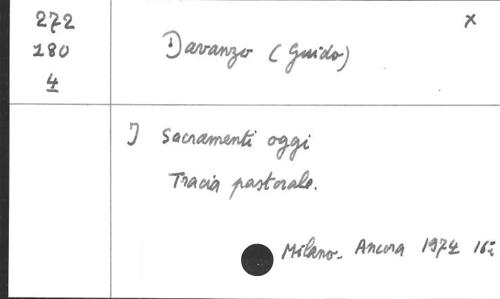 272
180
4
x
Davanzo (Guido)
I Sacramenti oggi
Tracia pastorale.
Milano. Ancora 1974 16º